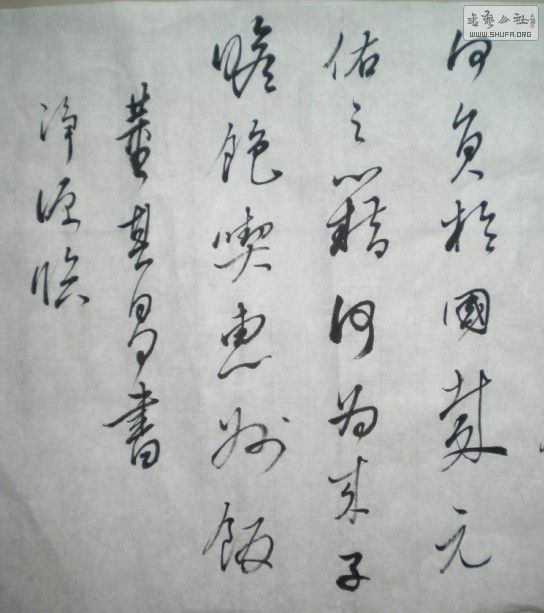 何負於國元
佑之籍何為來子
瞻飽喫惠州飯
董其昌書
淨源臨
書藝公社
WWW.SHUFA.ORG